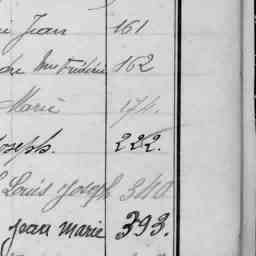 Jean 161
162
Marie 174.
Joseph. 222.
Louis Joseph 340
Jean Marie 393.